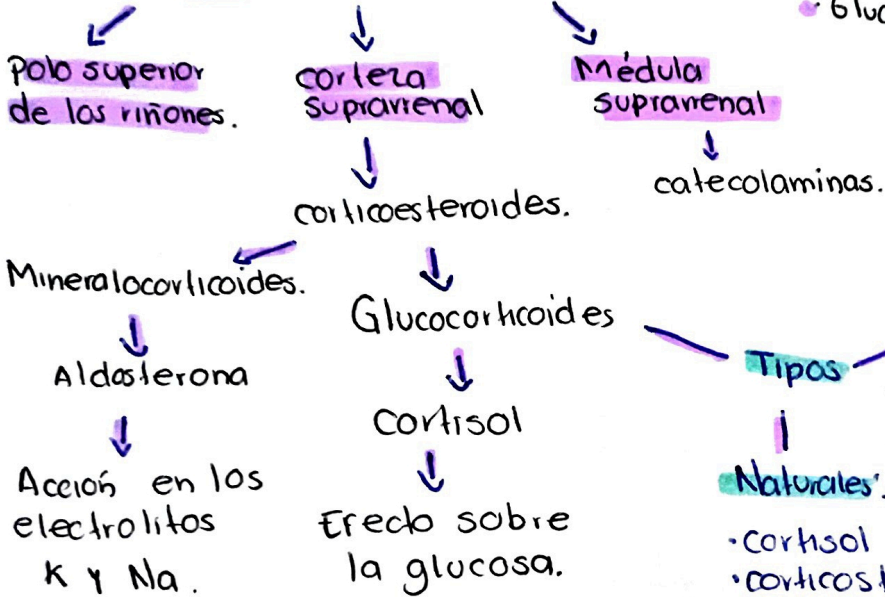 Gluc
Polo superior
de los riñones.
corteza
suprarrenal
Médula
suprarrenal
catecolaminas.
corticoesteroides.
Mineralocorticoides.
Glucocorticoides
Tipos
Aldosterona
cortisol
Naturales
Acción en los
electrolitos
K y Na.
Efecto sobre
la glucosa.
• cortisol
• corticost